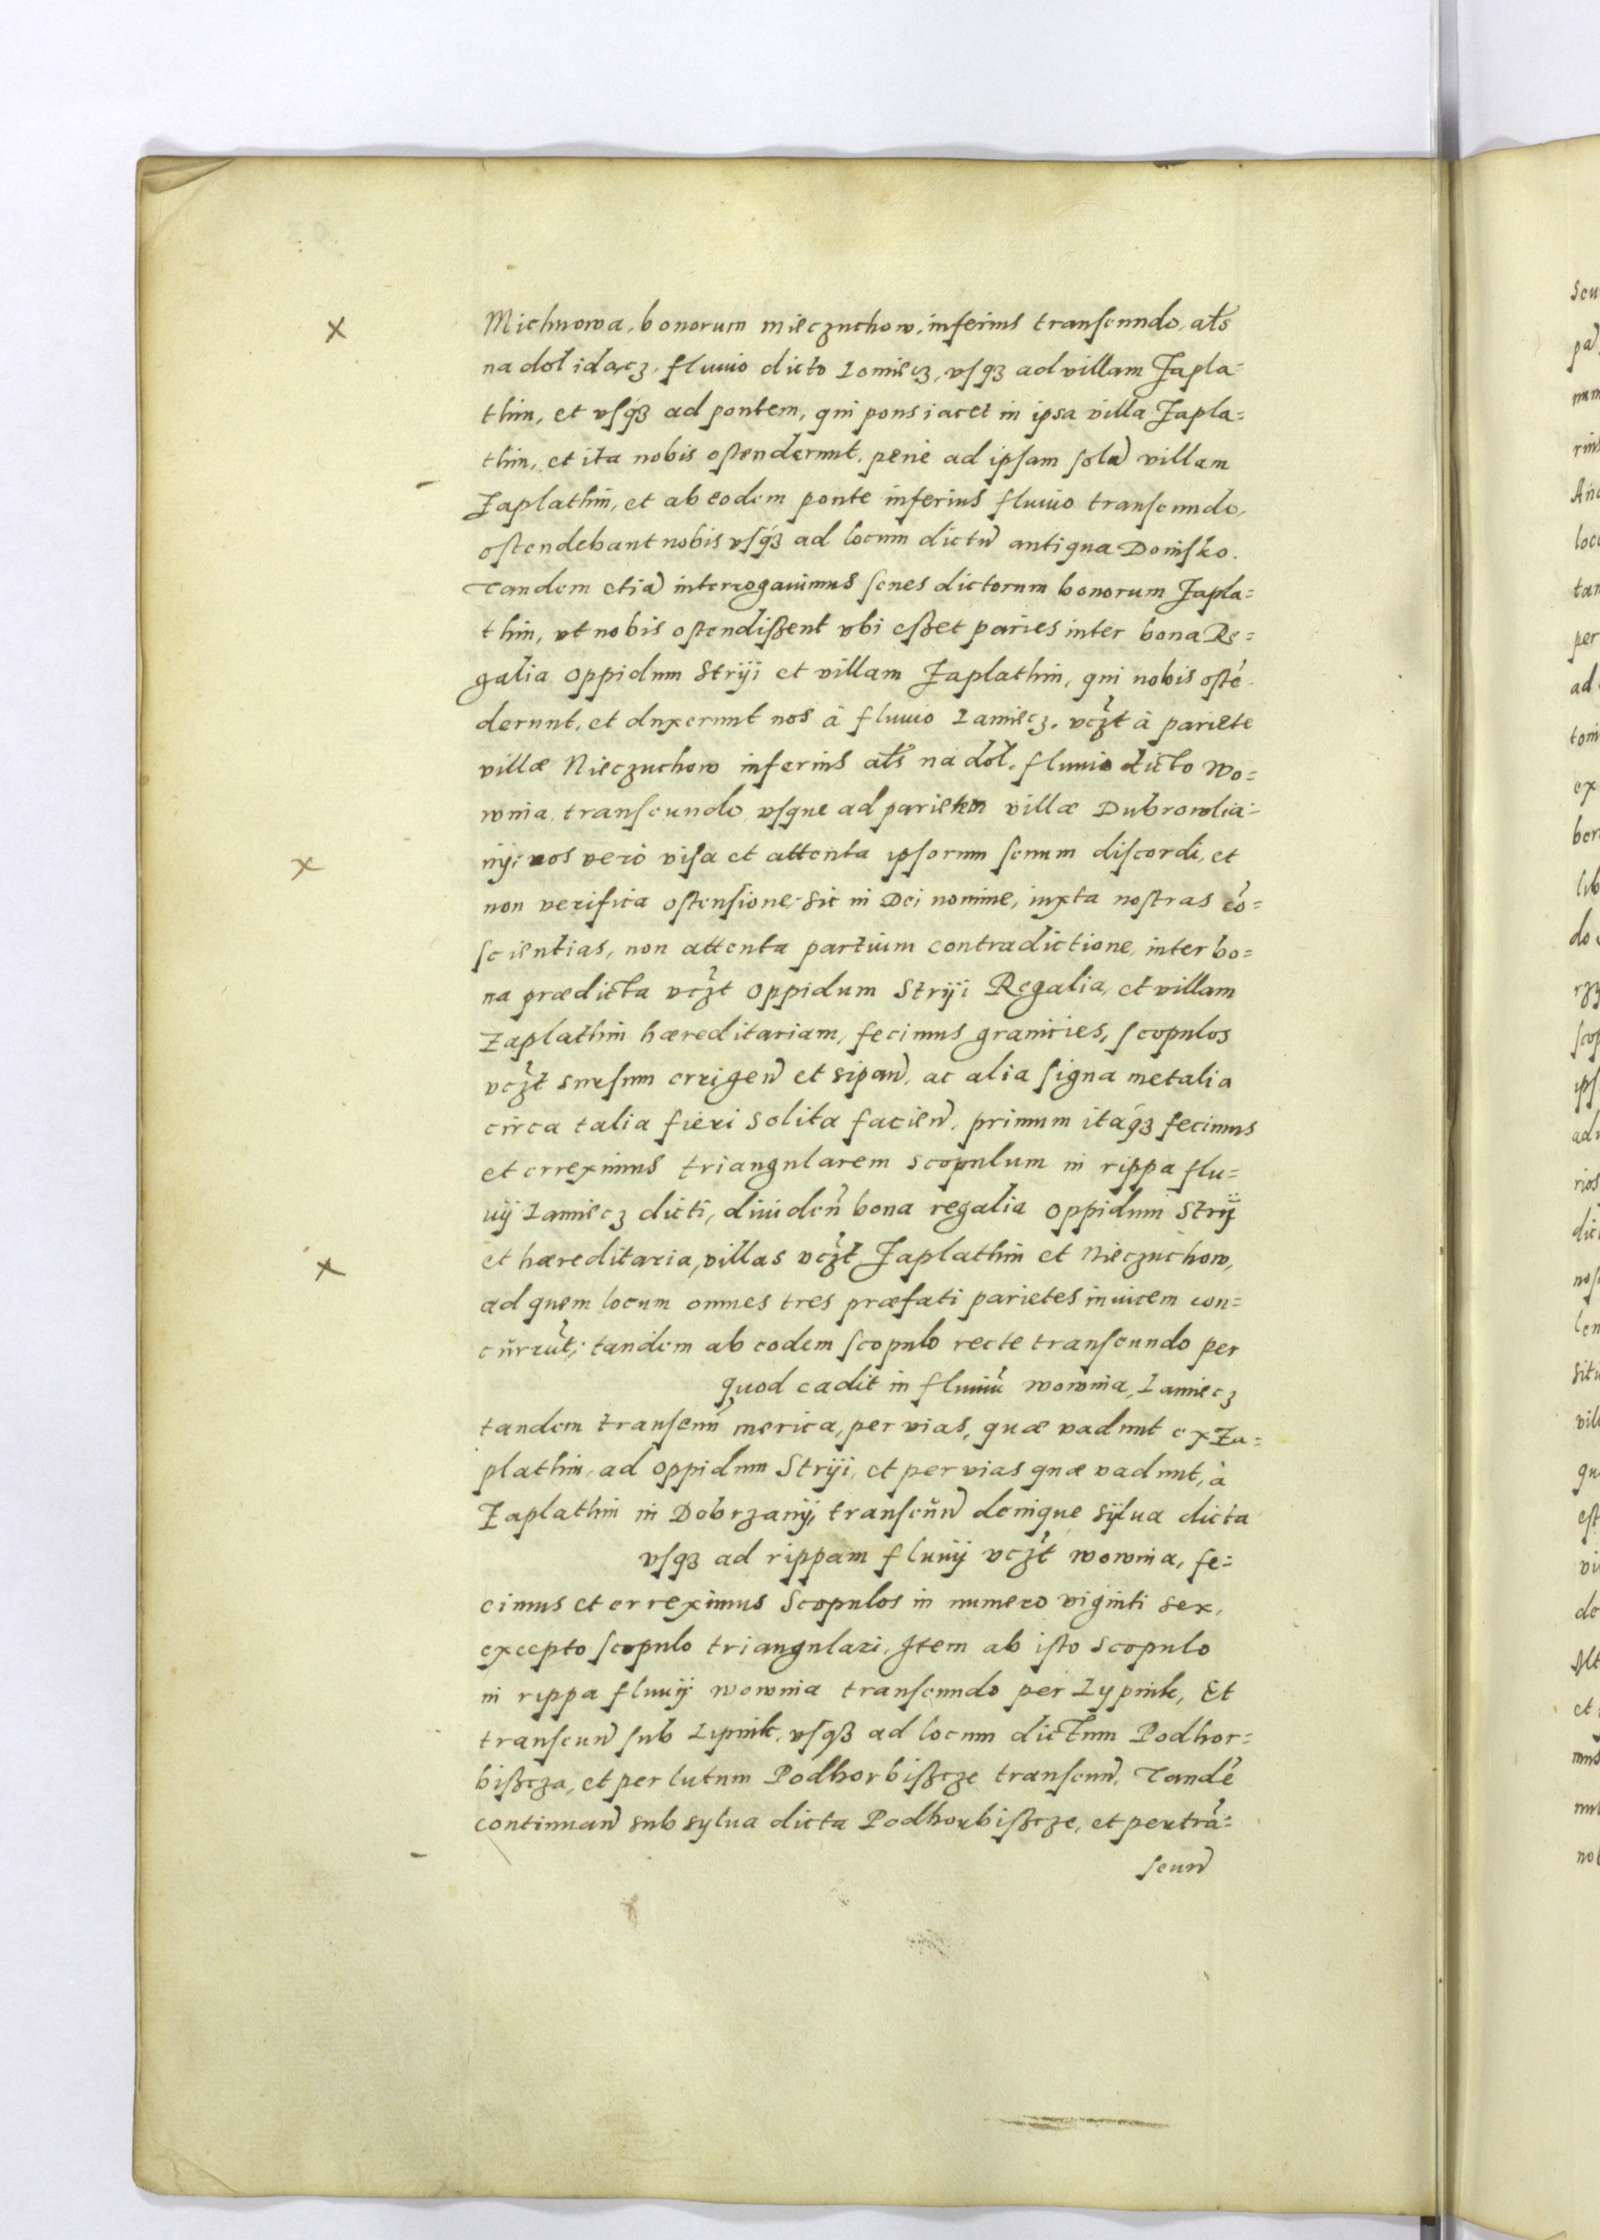 Michnowa, bonorum Nieczuchow, inferius transeundo, als
na dol idącz, fluuio dicto Lamiecz, vsqz ad villam Zapla=
thin, et vsqz ad pontem, qui pons iacet in ipsa villa Zapla=
thin, et ita nobis ostenderunt, penè ad ipsam solã villam
Zaplathin, et ab eodem ponte inferius fluuio transeundo,
ostendebant nobis vsqz ad locum dictũ antiqua Domsko.
Tandem etiã interrogauimus senes dictorum bonorum Zapla=
thin, vt nobis ostendißent vbi eßet paries inter bona Re=
galia oppidum Striji et villam Zaplathin, qui nobis ostẽ
derunt, et duxerunt nos à fluuio Lamiecz, vczt à pariete
villæ Nieczuchow inferius als na dol, fluuio dicto Wo=
wnia, transeundo vsque ad parietem villæ Dubrowlia=
nij: nos verò visa et attenta ipsorum senum discordi, et
non verifica ostensione, sic in Dei nomine, iuxta nostras cõ=
scientias, non attenta partium contradictione, inter bo=
na prædicta vczt oppidum Striji Regalia, et villam
Zaplathin hæreditariam, fecimus granicies, scopulos
vczt sursum erigeñ et sipañ, ac alia signa metalia
circa talia fieri solita facieñ, primum itaqz fecimus
et erreximus triangularem scopulum in rippa flu=
uij Lamiecz dicti, diuideñ bona regalia oppidum Strij
et hæreditaria, villas vczt Zaplathin et Nieczuchow,
ad quem locum omnes tres præfati parietes inuicem con=
currũt; tandem ab eodem scopulo recte transeundo per
quod cadit in fluuiũ Wownia, Lamiecz
tandem transeuñ merica, per vias, quæ vadunt ex Za=
plathin, ad oppidum Striji, et per vias quæ vadunt, à
Zaplathin in Dobrzanij, transeuñ denique sylua dicta
vsqz ad rippam fluuij vczt Wownia, fe=
cimus et erreximus scopulos in numero viginti sex,
excepto scopulo triangulari. Item ab isto scopulo
in rippa fluuij Wownia transeundo per Lypnik, Et
transeuñ sub Lipnik, vsqz ad locum dictum Podhor=
bißcza, et per lutum Podhorbißcze transeuñ, Tandẽ
continuañ sub sylua dicta Podhorbißcze, et pertrã=
seuñ